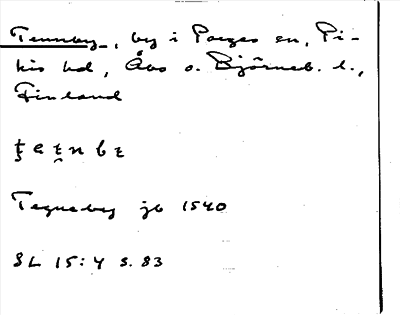 Tennby, by i Pargas sn, Pi-
kis hd, Åbo o. Björneb. l.,
Finland
Tegneby jb 1540
SL 15:4 s. 83